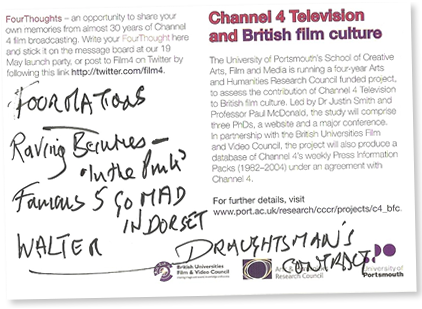 FourThoughts – an opportunity to share your
own memories from almost 30 years of Channel
4 film broadcasting. Write your FourThought here
and stick it on the message board at our 19
May launch party, or post to Film4 on Twitter by
following this link http://twitter.com/film4.
FOURMATIONS
Raving Beauties –
'In the Pink'
Famous 5 GO MAD
IN DORSET
WALTER
DRAUGHTSMAN'S
CONTRACT
Channel 4 Television
and British film culture
The University of Portsmouth's School of Creative
Arts, Film and Media is running a four-year Arts
and Humanities Research Council funded project,
to assess the contribution of Channel 4 Television
to British film culture. Led by Dr Justin Smith and
Professor Paul McDonald, the study will comprise
three PhDs, a website and a major conference.
In partnership with the British Universities Film
and Video Council, the project will also produce a
database of Channel 4's weekly Press Information
Packs (1982–2004) under an agreement with
Channel 4.
For further details, visit
www.port.ac.uk/research/cccr/projects/c4_bfc.
British Universities
Film & Video Council
Arts &
Research Council
University of
Portsmouth